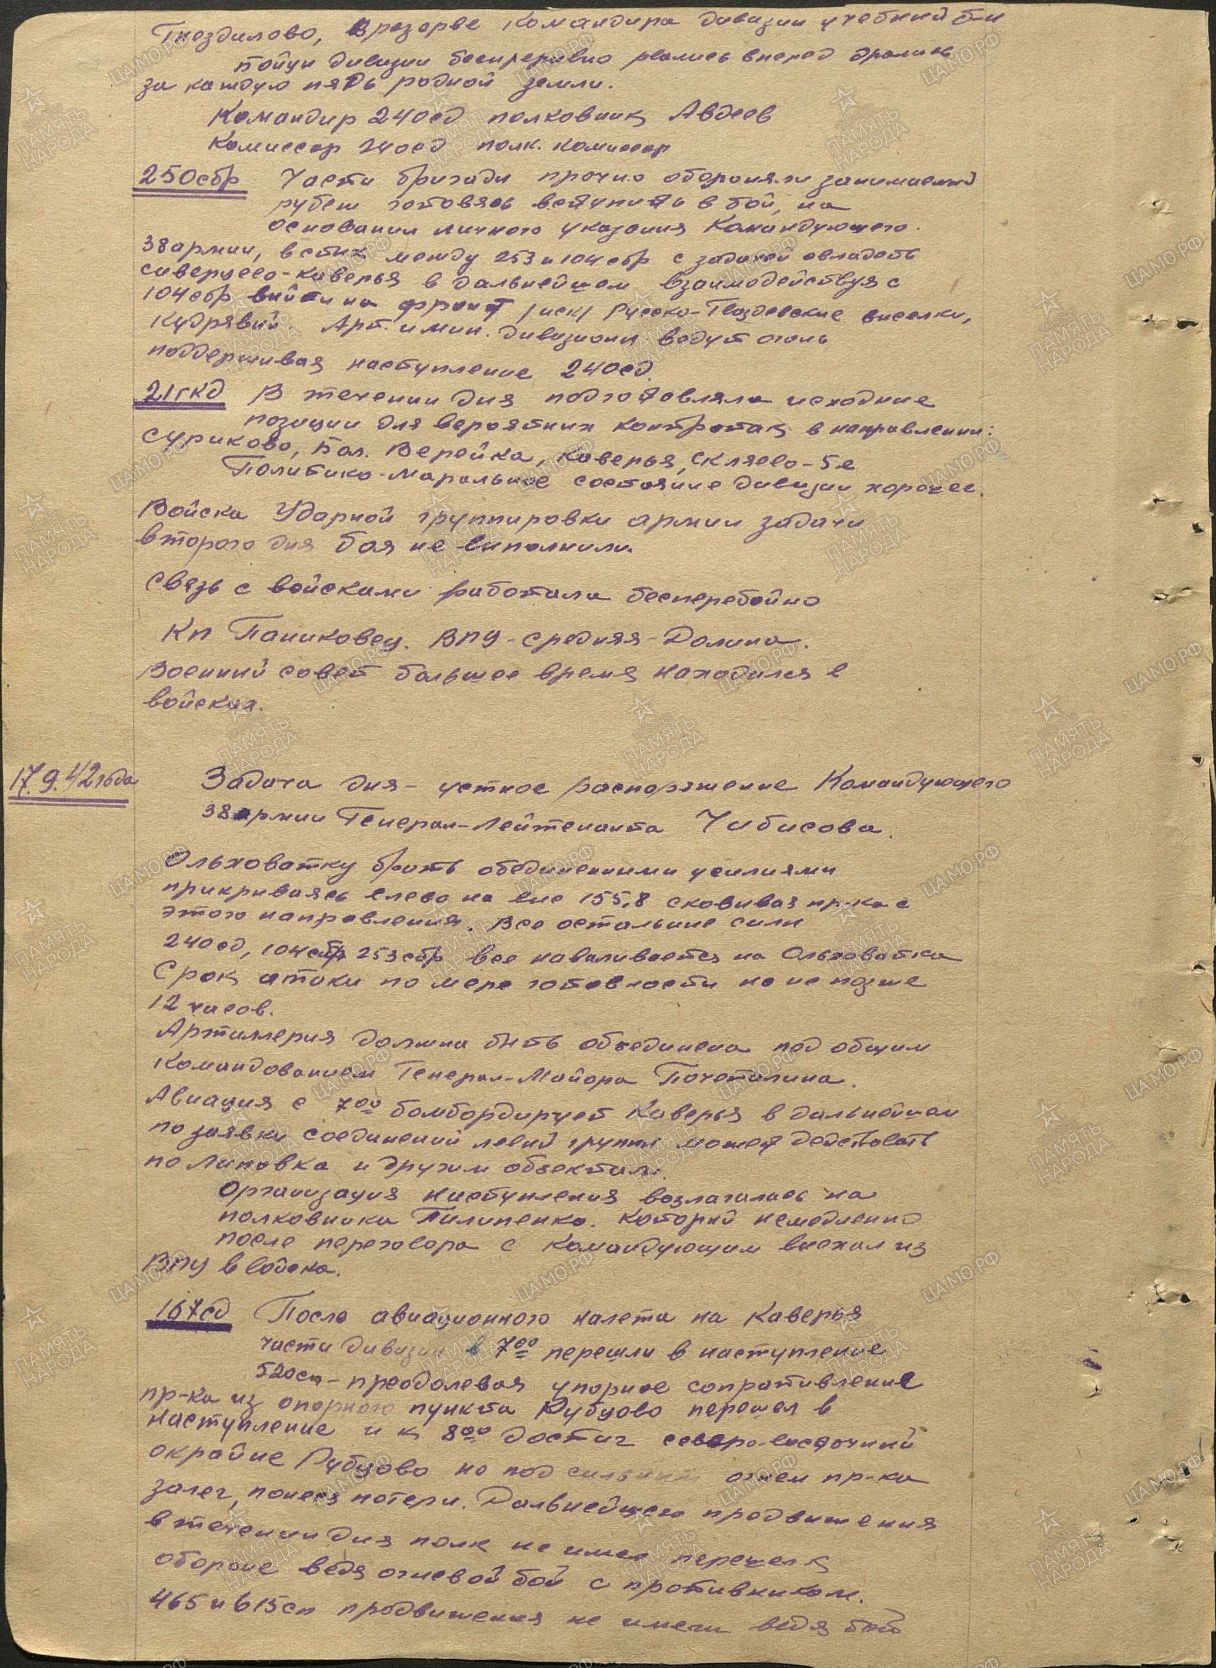 Гнездилово, в резерве Командира дивизии учебный б-н
Бойцы дивизии беспрерывно рвались вперед дрались
за каждую пядь родной земли.
Командир 240сд полковник Авдеев
Комиссар 240сд полк. комиссар
250сбр Части бригады прочно обороняли занимаемый
рубеж готовясь вступить в бой, на
основании личного указания Командующего
38 армии, в стик между 253 и 104 сбр с задачей овладеть
сиверцево-каверья в дальнейшем взаимодействуя с
104сбр выйти на фронт /иск/ Русско-Гвоздевские выселки,
Кудрявий. Арт. и мин. дивизионы ведут огонь
поддерживая наступление 240сд.
21гкд В течении дня подготовляла исходные
позиции для вероятных контратак в направлении:
Суриково, Бол. Верейка, Каверья, Скляево-5е
Политико-моральное состояние дивизии хорошее.
Войска Ударной группировки армии задачи
второго дня боя не выполнили.
Связь с войсками работала бесперебойно
Кп Паниковец. ВПУ-Средняя-Долина.
Военний совет большее время находился в
войсках.
17.9.42 года Задача дня - устное распоряжение Командующего
38 армии Генерал-Лейтенанта Чибисова.
Ольховатку брать обединенными усилиями
прикриваясь слево на выс 155,8 сковивая пр-ка с
этого направления. Все остальние сили
240сд, 104сбр 253сбр все наваливается на Ольховатка
Срок атаки по мере готовности но не позже
12 часов.
Артиллерия должна быть объединена под общим
Командованием Генерал-Майора Почоталина.
Авиация с 7 00 бомбордирует Каверья в дальнейшем
по заявки соединений левий группи может действовать
по Липовка и другим объектам.
Организация наступления возлагалась на
полковника Пилипенко. Который немедленно
после переговора с Командующим выехал из
ВПУ в войска.
167сд После авиационного налета на Каверья
части дивизии в 7 00 перешли в наступление
520сп - преодолевая упорное сопротивление
пр-ка из опорного пункта Рубцово перешел в
наступление и к 8 00 достиг северо-восточний
окрайне Рубцово но под сильним огнем пр-ка
залег, понеся потери. Дальнейшего продвижения
в течении дня полк не имел перешел к
обороне ведя огневой бой с противником.
465 и 615сп продвижения не имели ведя бой